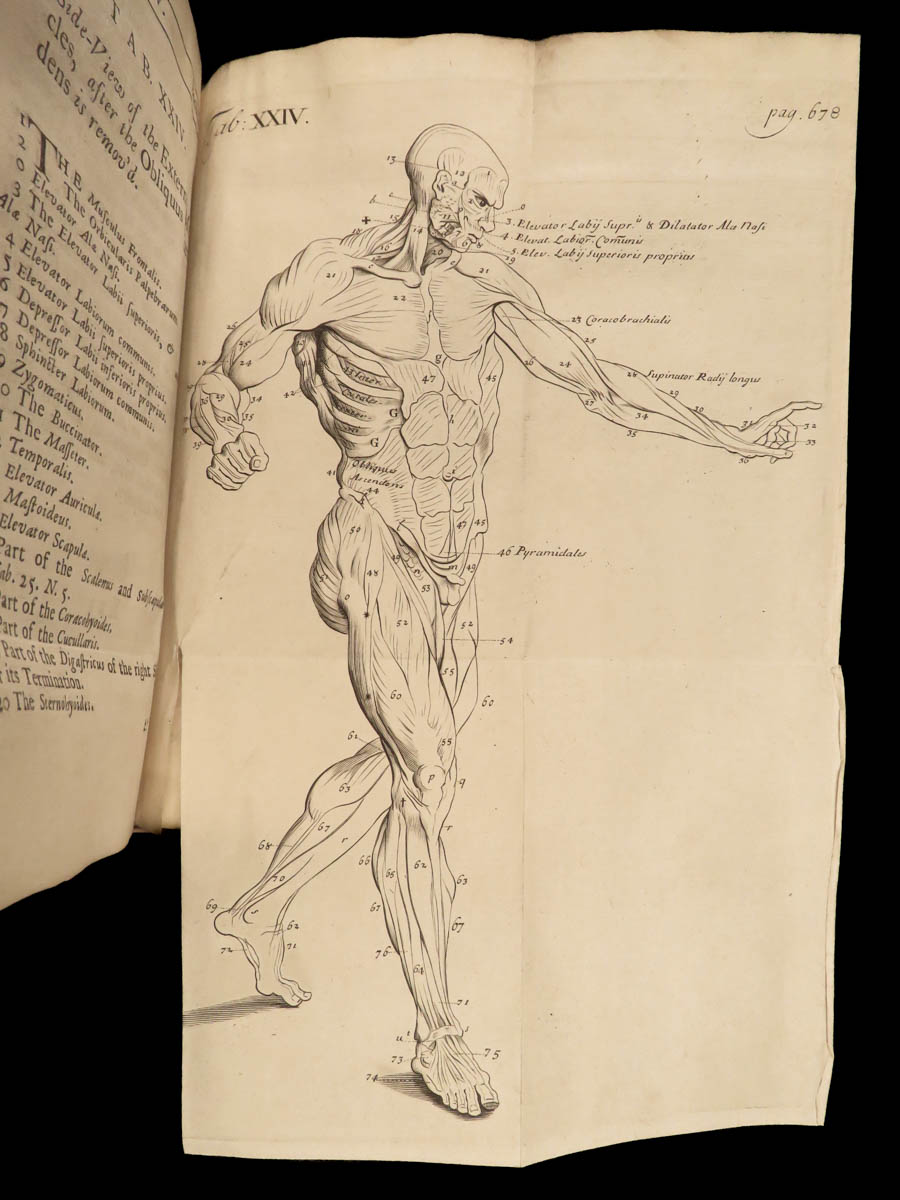 TAB. XXIV.
Side-View of the Extern
cles, after the Obliquus
dens is remov'd.
1 THE Musculus Frontalis.
2 The Orbicularis Palpebrarum
0 Elevator Alæ Nasi.
3 The Elevator Labii superioris, &
Alæ Nasi.
4 Elevator Labiorum communis.
5 Elevator Labii superioris proprius.
6 Depressor Labii inferioris proprius.
7 Depressor Labiorum communis.
8 Sphincter Labiorum.
9 Zygomaticus.
0 The Buccinator.
The Masseter.
Temporalis.
Elevator Auricula.
Mastoideus.
Elevator Scapula.
Part of the Scalenus and Subscapula
ab. 25. N. 5.
art of the Coracohyoides.
art of the Cucullaris.
Part of the Digastricus of the right S
r its Termination.
20 The Sternohyoides.
Tab: XXIV.
pag. 678
13
10
c
b
o
3. Elevator Labij Supr.is & Dilatator Alæ Nasi
15
11
4. Elevat. Labior. Comunis
18
14
7
6
8
5. Elev. Labij Superioris proprius
16
20
19
21
c
c
21
22
23 Coracobrachialis
25
25
g
28
24
45
26
24
28 Supinator Radij longus
47
45
42
29
G
h
27
30
36
34
34
31
32
35
35
33
39
G
36
41
Obliquus
Ascendens
44
50
47
45
49
46 Pyramidales
48
m
49
53
52
52
54
55
60
60
61
55
p
q
63
t
67
r
r
68
66
65
62
63
70
69
s
67
67
62
72
71
76
64
71
u
t
s
73
75
74